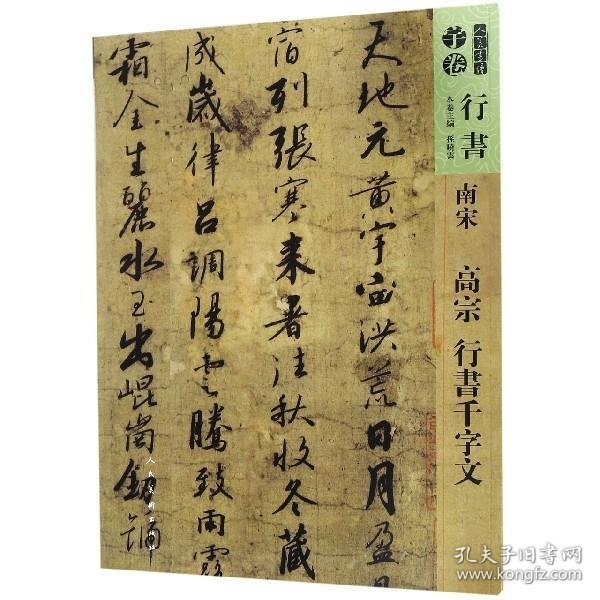 人美書譜
宇卷
行書
本卷主编 孫曉雲
南宋 高宗 行書千字文
天地元黄宇宙洪荒日月盈
宿列張寒来暑往秋收冬藏
成歲律吕調陽雲騰致雨露
霜金生麗水玉出崐崗劒
人民美術出版社
孔夫子旧书网
www.kongfz.com